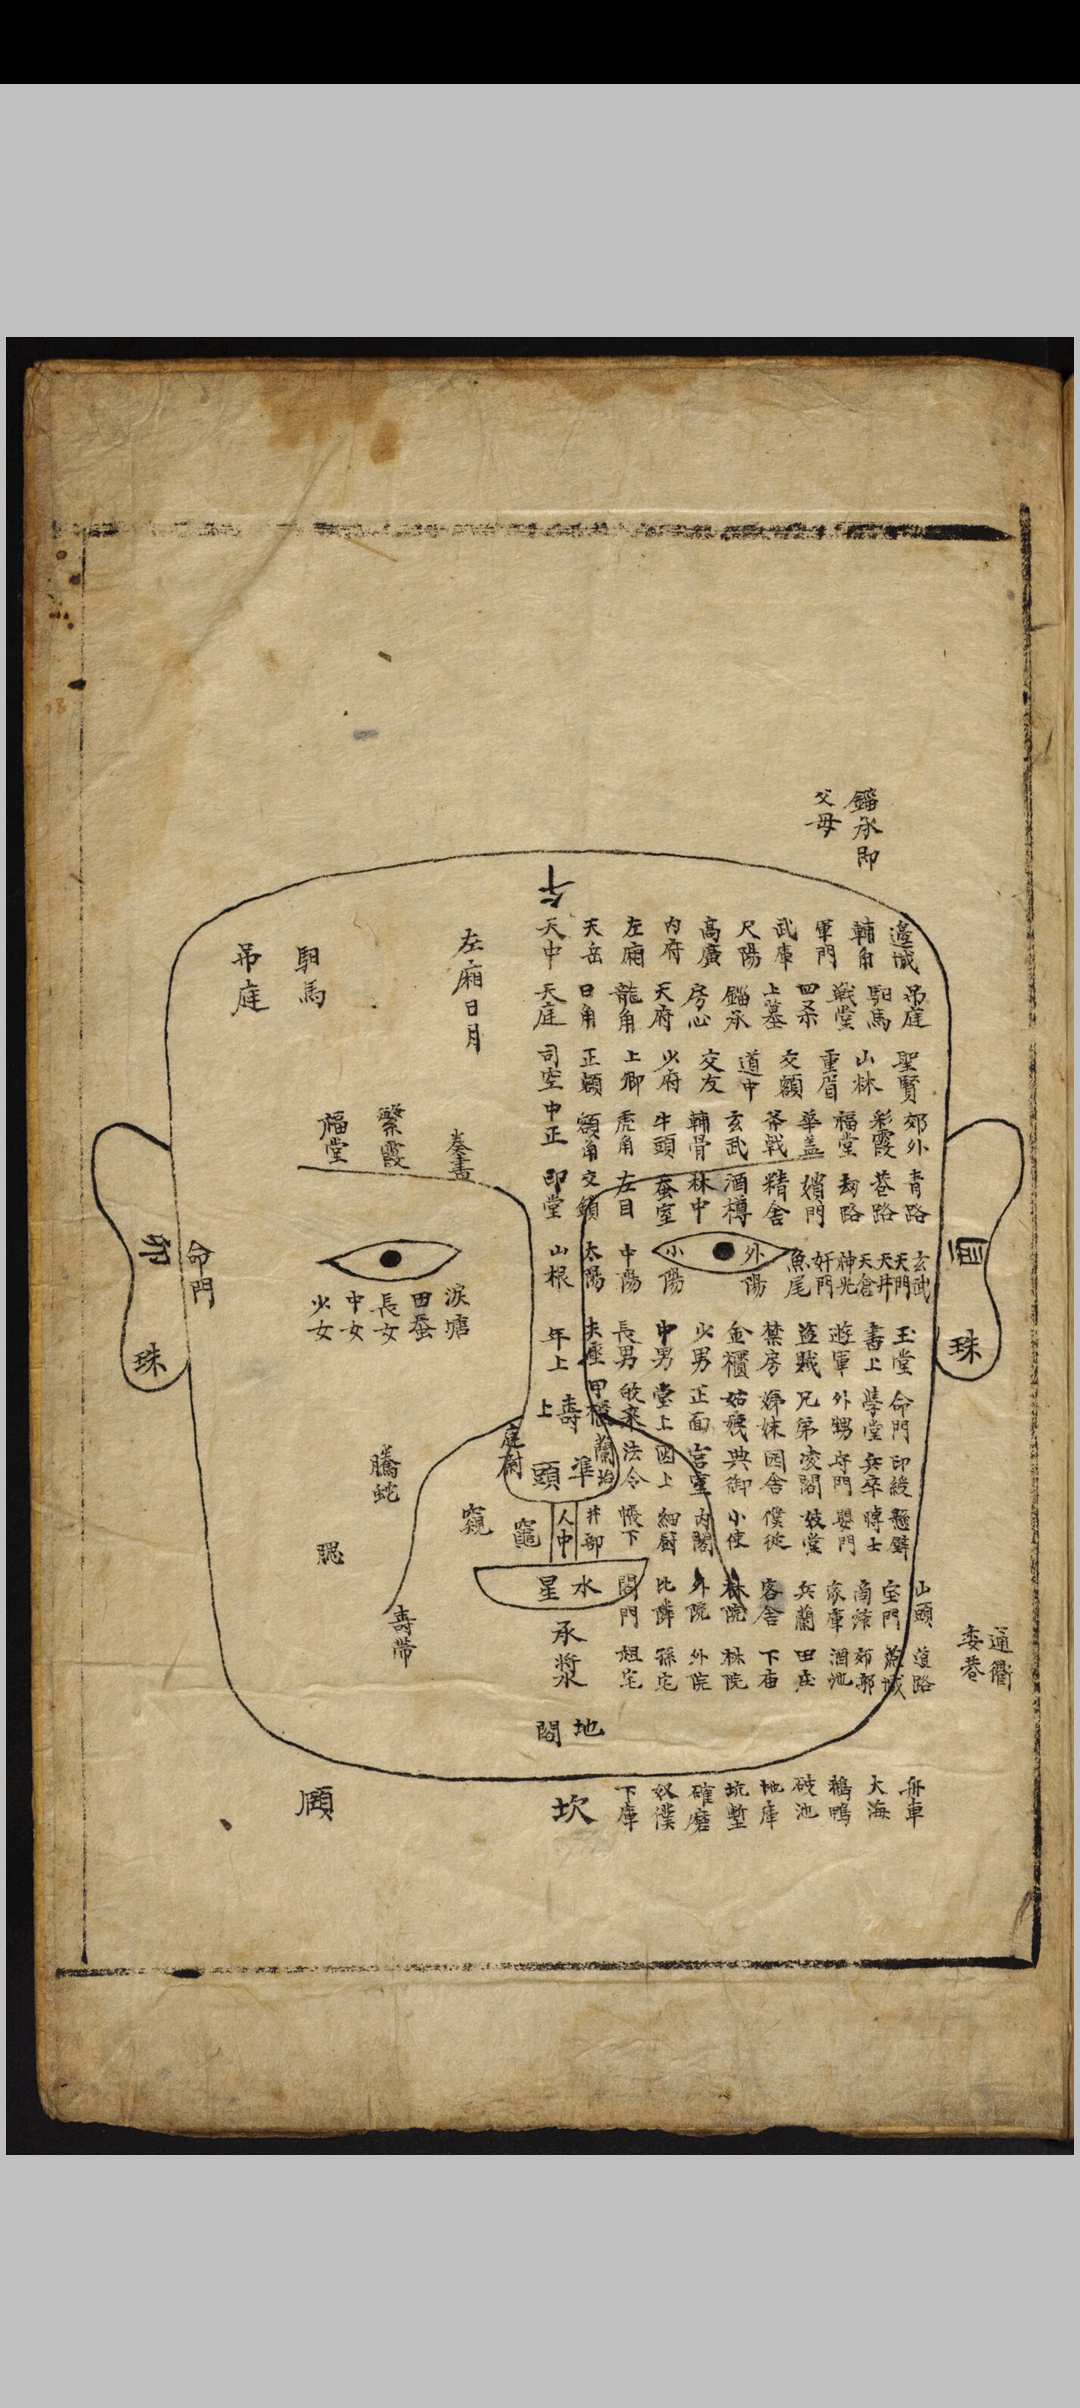 父母
午
天中 天岳 左廂 內府 高廣 尺陽 武庫 軍門 輔角 邊城
天庭 日角 龍角 天府 房心 上墓 四殺 戰堂 馹馬 吊庭
司空 正額 上卿 少府 交友 道中 交額 重眉 山林 聖賢
中正 額角 虎角 牛頭 輔骨 玄武 斧戟 華盖 福堂 彩霞 郊外
印堂 交鎖 左目 蚕室 林中 酒樽 精舍 嬪門 刼路 巷路 青路
山根 太陽 中陽 小陽 外陽 魚尾 奸門 神光 天倉 天井 天門 玄武
年上 夫座 長男 中男 少男 金櫃 禁房 盜賊 遊軍 書上 玉堂
壽上 甲樻 皈来 堂上 正面 姑姨 姊妹 兄弟 外甥 學堂 命門
準頭 蘭坮 法令 宮室 典御 园舍 凌閣 守門 兵卒 印綬
人中 井部 帳下 細廚 內閣 小使 僕從 妓堂 嬰門 博士 懸壁
水星 閤門 比隣 外院 林院 客舍 兵蘭 家庫 宝門 山頭
承漿 祖宅 孫宅 外院 林院 下庙 田庄 酒池 郊郭 荒城 道路
地閣
坎 下庫 奴僕 碓磨 坑塹 地庫 破池 鵝鴨 大海 舟車
通衢
委巷
酉
珠
左廂日月
馹馬
吊庭
奏書
繁霞
福堂
卯
命門
珠
淚塘
田蚕
長女
中女
少女
庭尉
騰蛇
竈
聰
壽帶
頤